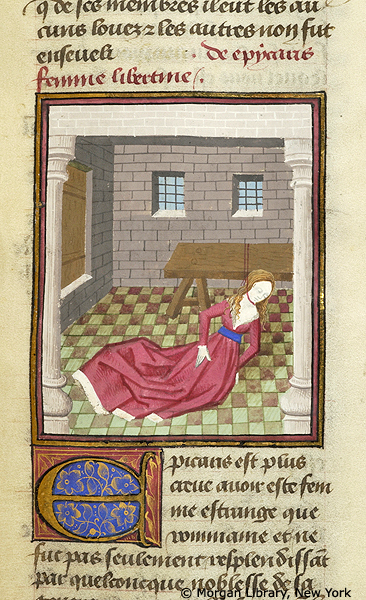 de ses membres ileut les au
cuns louez et les autres non fut
enseueli de epycaris
femme libertine
Epicaris est plus
creue auoir este fem
me estrange que
rommaine et ne
fut pas seulement resplendissāt
par quelconque noblesse de sa
© Morgan Library, New York